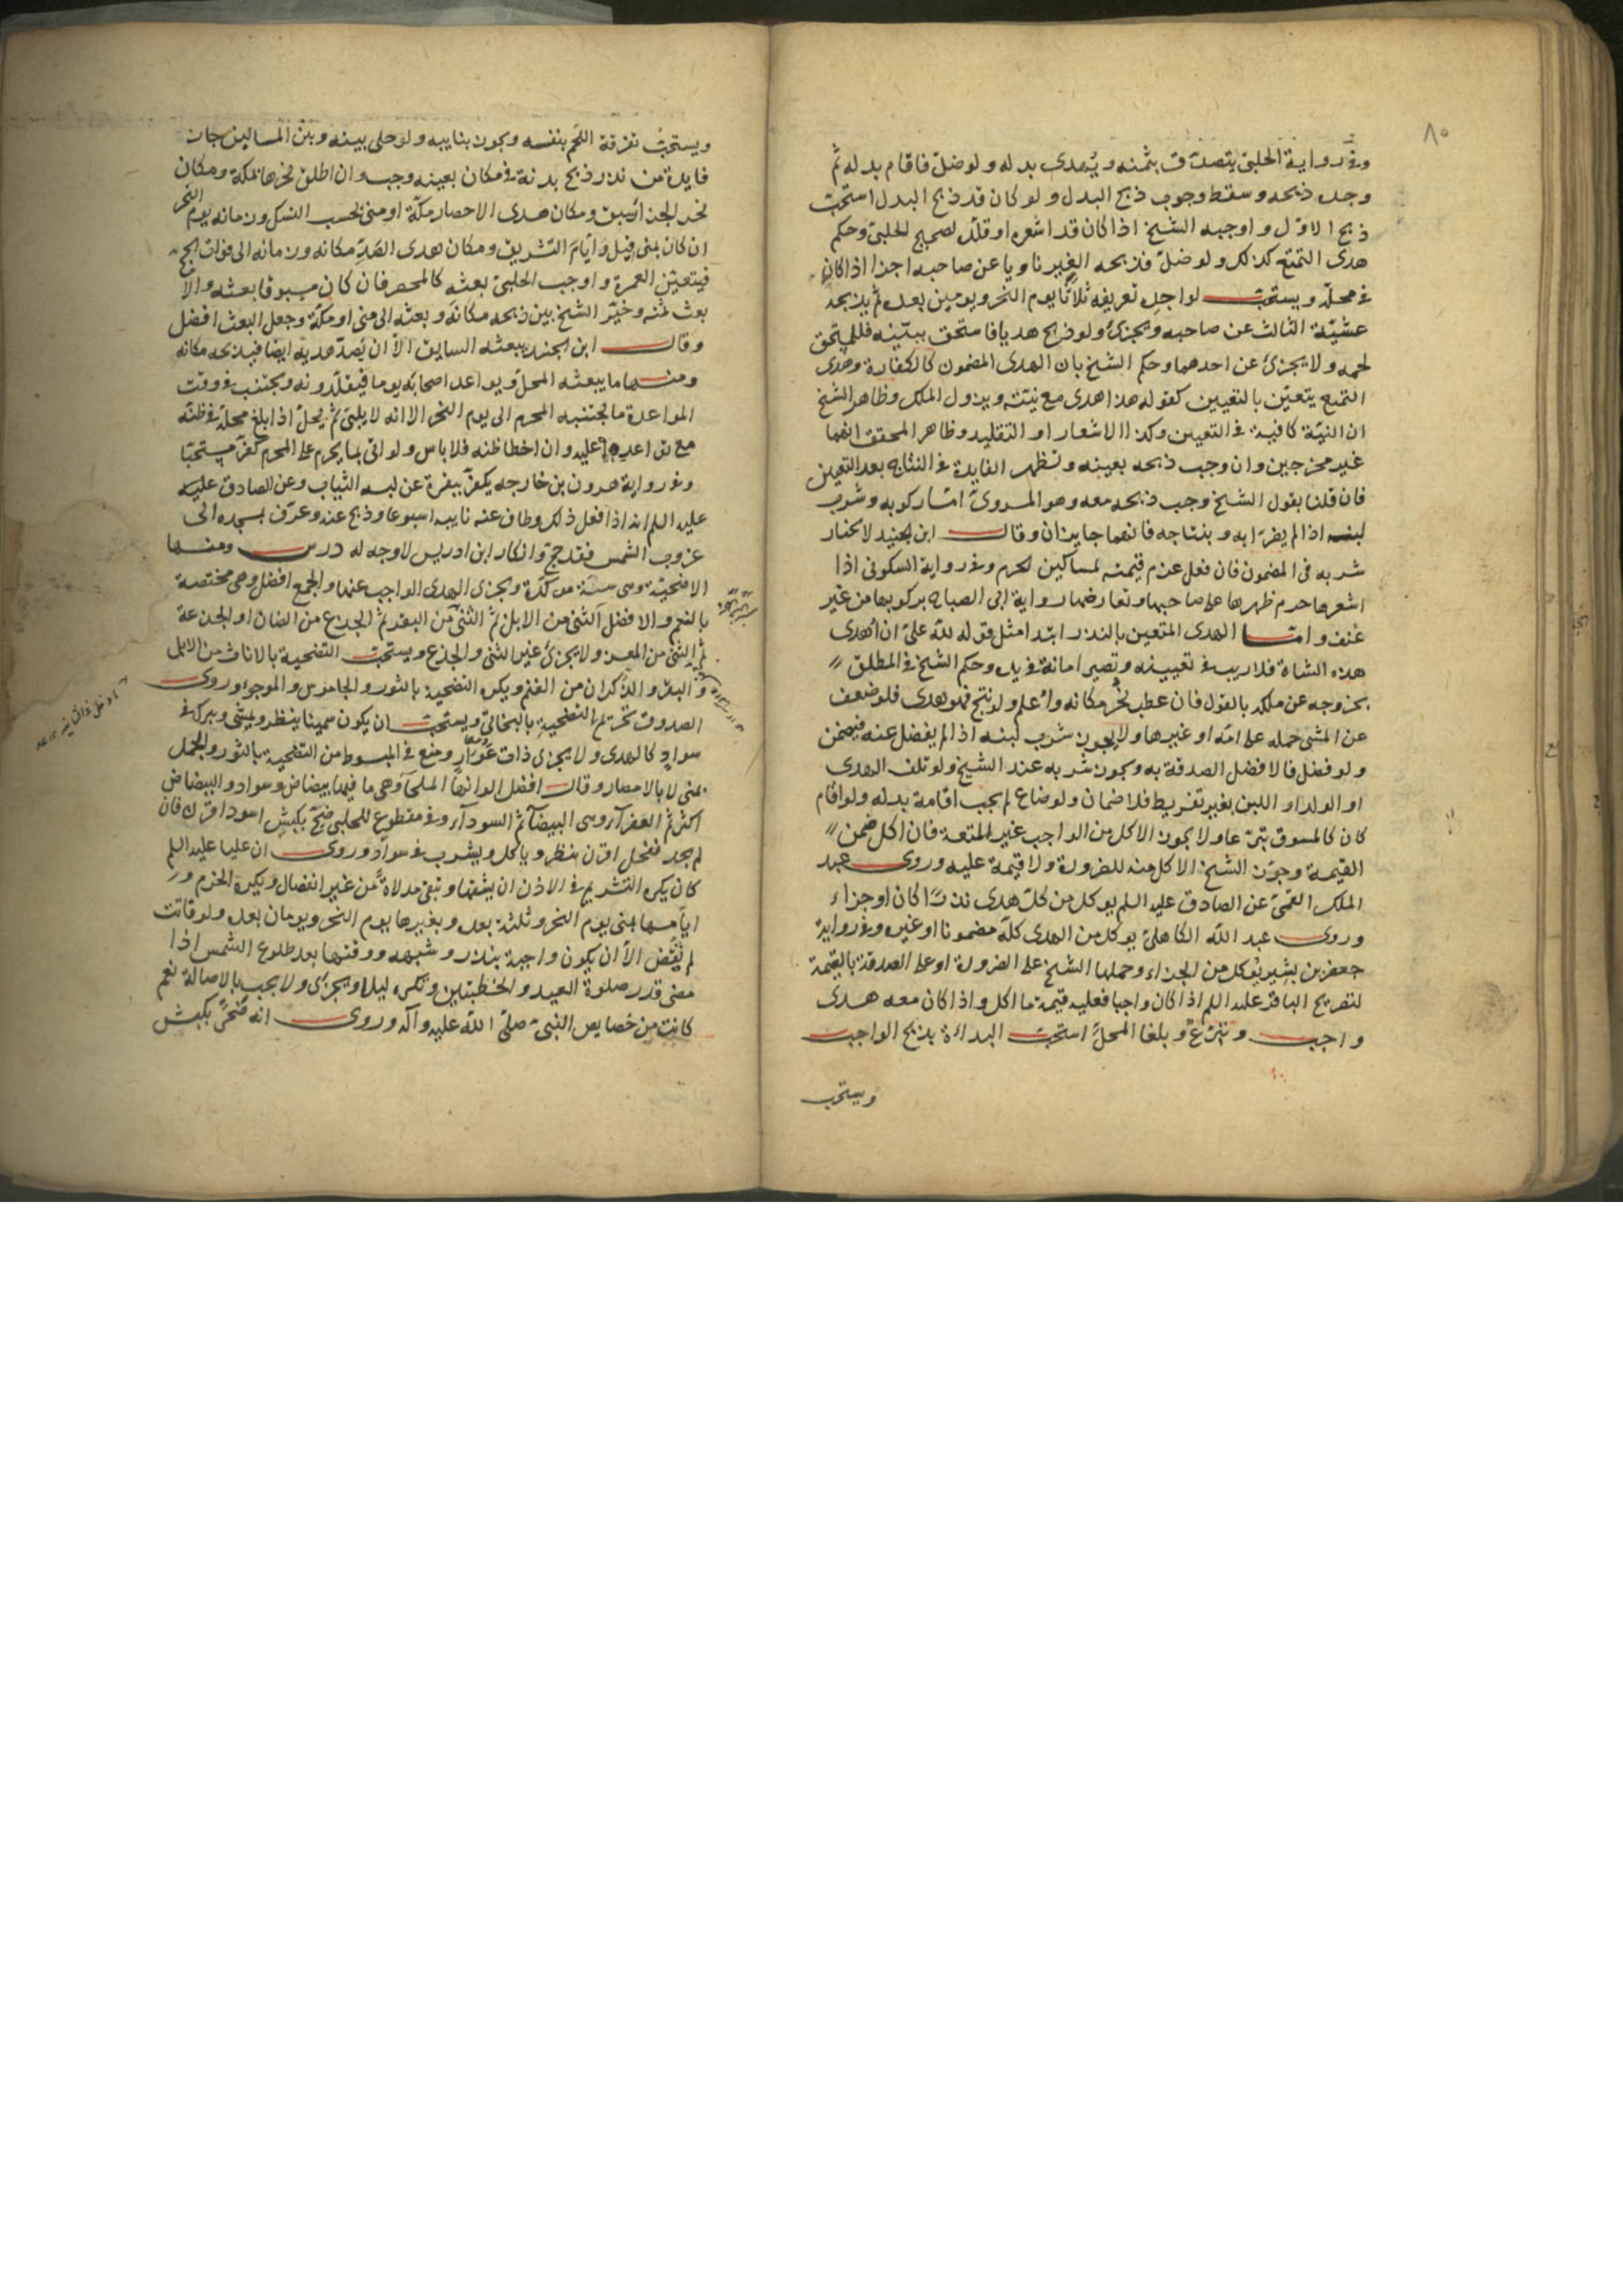 ٨٠
وفي رواية الحلبي يتصدق بثمنه ويهدي بدله ولو ضل فاقام بدله ثم
وجده ذبحه وسقط وجوب ذبح البدل ولو كان قد ذبح البدل استحب
ذبح الاول واوجبه الشيخ اذا كان قد اشعره او قلده لصحيح الحلبي وحكم
هدي التمتع كذلك ولو ضل فذبحه الغير ناويا عن صاحبه اجزا اذا كان
في محله ويستحب لواجده تعريفه ثلاثا يوم النحر ويومين بعده ثم يذبحه
عشية الثالث عن صاحبه ويجزئ ولو ذبح هديا فاستحق ببينة فللمستحق
لحمه ولا يجزئ عن احدهما وحكم الشيخ بان الهدي المضمون كالكفارة وهدي
التمتع يتعين بالتعيين كقوله هذا هدي مع نيته ويزول الملك وظاهر الشيخ
ان النية كافية في التعيين وكذا الاشعار او التقليد وظاهر المحقق انهما
غير مخرجين وان وجب ذبحه بعينه وتظهر الفايدة في النتاج بعد التعيين
فان قلنا بقول الشيخ وجب ذبحه معه وهو المروي اما ركوبه وشرب
لبنه اذا لم يضر به وبنتاجه فانهما جايزان وقال ابن الجنيد لا يختار
شربه في المضمون فان فعل غرم قيمته لمساكين الحرم وفي رواية السكوني اذا
اشعرها حرم ظهرها على صاحبها وتعارضها رواية ابي الصباح بركوبها من غير
عنف واما الهدي المتعين بالنذر ابتدا مثل قوله لله علي ان اهدي
هذه الشاة فلا ريب في تعيينه وتصير امانة في يده وحكم الشيخ في المطلق
بخروجه عن ملكه بالقول فان عطب نحر مكانه واعلم ولو نتج فهو هدي فلو ضعف
عن المشي حمله على امه او غيرها ولا يجوز شرب لبنه اذا لم يفضل عنه فيضمن
ولو فضل فالافضل الصدقة به ويجوز شربه عند الشيخ ولو تلف الهدي
او الولد او اللبن بغير تفريط فلا ضمان ولو ضاع لم يجب اقامة بدله ولو اقام
كان كالمسوق تبرعا ولا يجوز الاكل من الواجب غير المتعة فان اكل ضمن
القيمة وجوز الشيخ الاكل منه للضرورة ولا قيمة عليه وروى عبد
الملك القمي عن الصادق عليه السلم يوكل من كل هدي نذرا كان او جزاء
وروى عبد الله الكاهلي يوكل من الهدي كله مضمونا او غيره وفي رواية
جعفر بن بشير يوكل من الجزاء وحملها الشيخ على الضرورة او على الصدقة بالقيمة
لتصريح الباقر عليه السلم اذا كان واجبا فعليه قيمة ما اكل واذا كان معه هدي
واجب وتبرع وبلغا المحل استحب البداءة بذبح الواجب
ويستحب
ويستحب تفرقة اللحم بنفسه ويجوز بنايبه ولو خلى بينه وبين المساكين جاز
فايدة من نذر ذبح بدنة في مكان بعينه وجب وان اطلق نحرها بمكة ومكان
نحر الجزا سبق ومكان هدي الاحصار مكة او منى بحسب النسك وزمانه يوم النحر
ان كان بمنى قيل وايام التشريق ومكان هدي الصد مكانه وزمانه الى فوات الحج
فيتعين العمرة واوجب الحلبي بعثه كالمحصر فان كان مسوقا بعثه والا
بعث ثمنه وخير الشيخ بين ذبحه مكانه وبعثه الى منى او مكة وجعل البعث افضل
وقال ابن الجنيد يبعثه السايق الا ان يصد هديه ايضا فيذبحه مكانه
ومنها ما يبعثه المحل ويواعد اصحابه يوما فيقلدونه ويجتنب في وقت
المواعدة ما يجتنبه المحرم الى يوم النحر الا انه لا يلبي ثم يحل اذا بلغ محله في ظنه
عليه وان اخطا ظنه فلا باس ولو اتى بما يحرم على المحرم كفر مستحبا
وفي رواية هرون بن خارجه يكفر ببقرة عن لبسه الثياب وعن الصادق عليه
عليه السلم انه اذا فعل ذلك وطاف عنه نايبه اسبوعا وذبح عنه وعرف بمسجده الى
غروب الشمس فقد حج وانكار ابن ادريس لا وجه له درس ومنها
الاضحية وهي سنة موكدة ويجزي الهدي الواجب عنها والجمع افضل وهي مختصة
بالنعم والافضل الثني من الابل ثم الثني من البقر ثم الجذع من الضان او الجذعة
ثم الثني من المعز ولا يجزئ غير الثني والجذع ويستحب التضحية بالاناث من الابل
والبقر والذكران من الغنم ويكره التضحية بالثور والجاموس والموجوء وروى
الصدوق تحريم التضحية بالبخاتي ويستحب ان يكون سمينا ينظر ويمشي ويبرك في
سواد كالهدي ولا يجزي ذات عوار ومنع في المبسوط من التضحية بالثور والجمل
بمنى لا بالامصار وقال افضل الوانها الملحآء وهي ما فيها بياض وسواد والبياض
اكثر ثم العفرآء وهي البيضآء ثم السودآء وفي مقطوع للحلبي ضح بكبش اسود اقرن فان
لم يجد فنحل اقرن ينظر وياكل ويشرب في سواد وروى ان عليا عليه السلم
كان يكره التشريم في الاذن ان يشقها وتبقى مدلاة من غير انفصال ويكره الخرم و
ايامها بمنى يوم النحر وثلثة بعده وبغيرها يوم النحر ويومان بعده ولو فاتت
لم يقض الا ان يكون واجبة بنذر وشبهه ووقتها بعد طلوع الشمس اذا
مضى قدر صلوة العيد والخطبتين وتكره ليلا ويجزي ولا يجب بالاصالة نعم
كانت من خصايص النبي صلى الله عليه وآله وروى انه ضحى بكبش